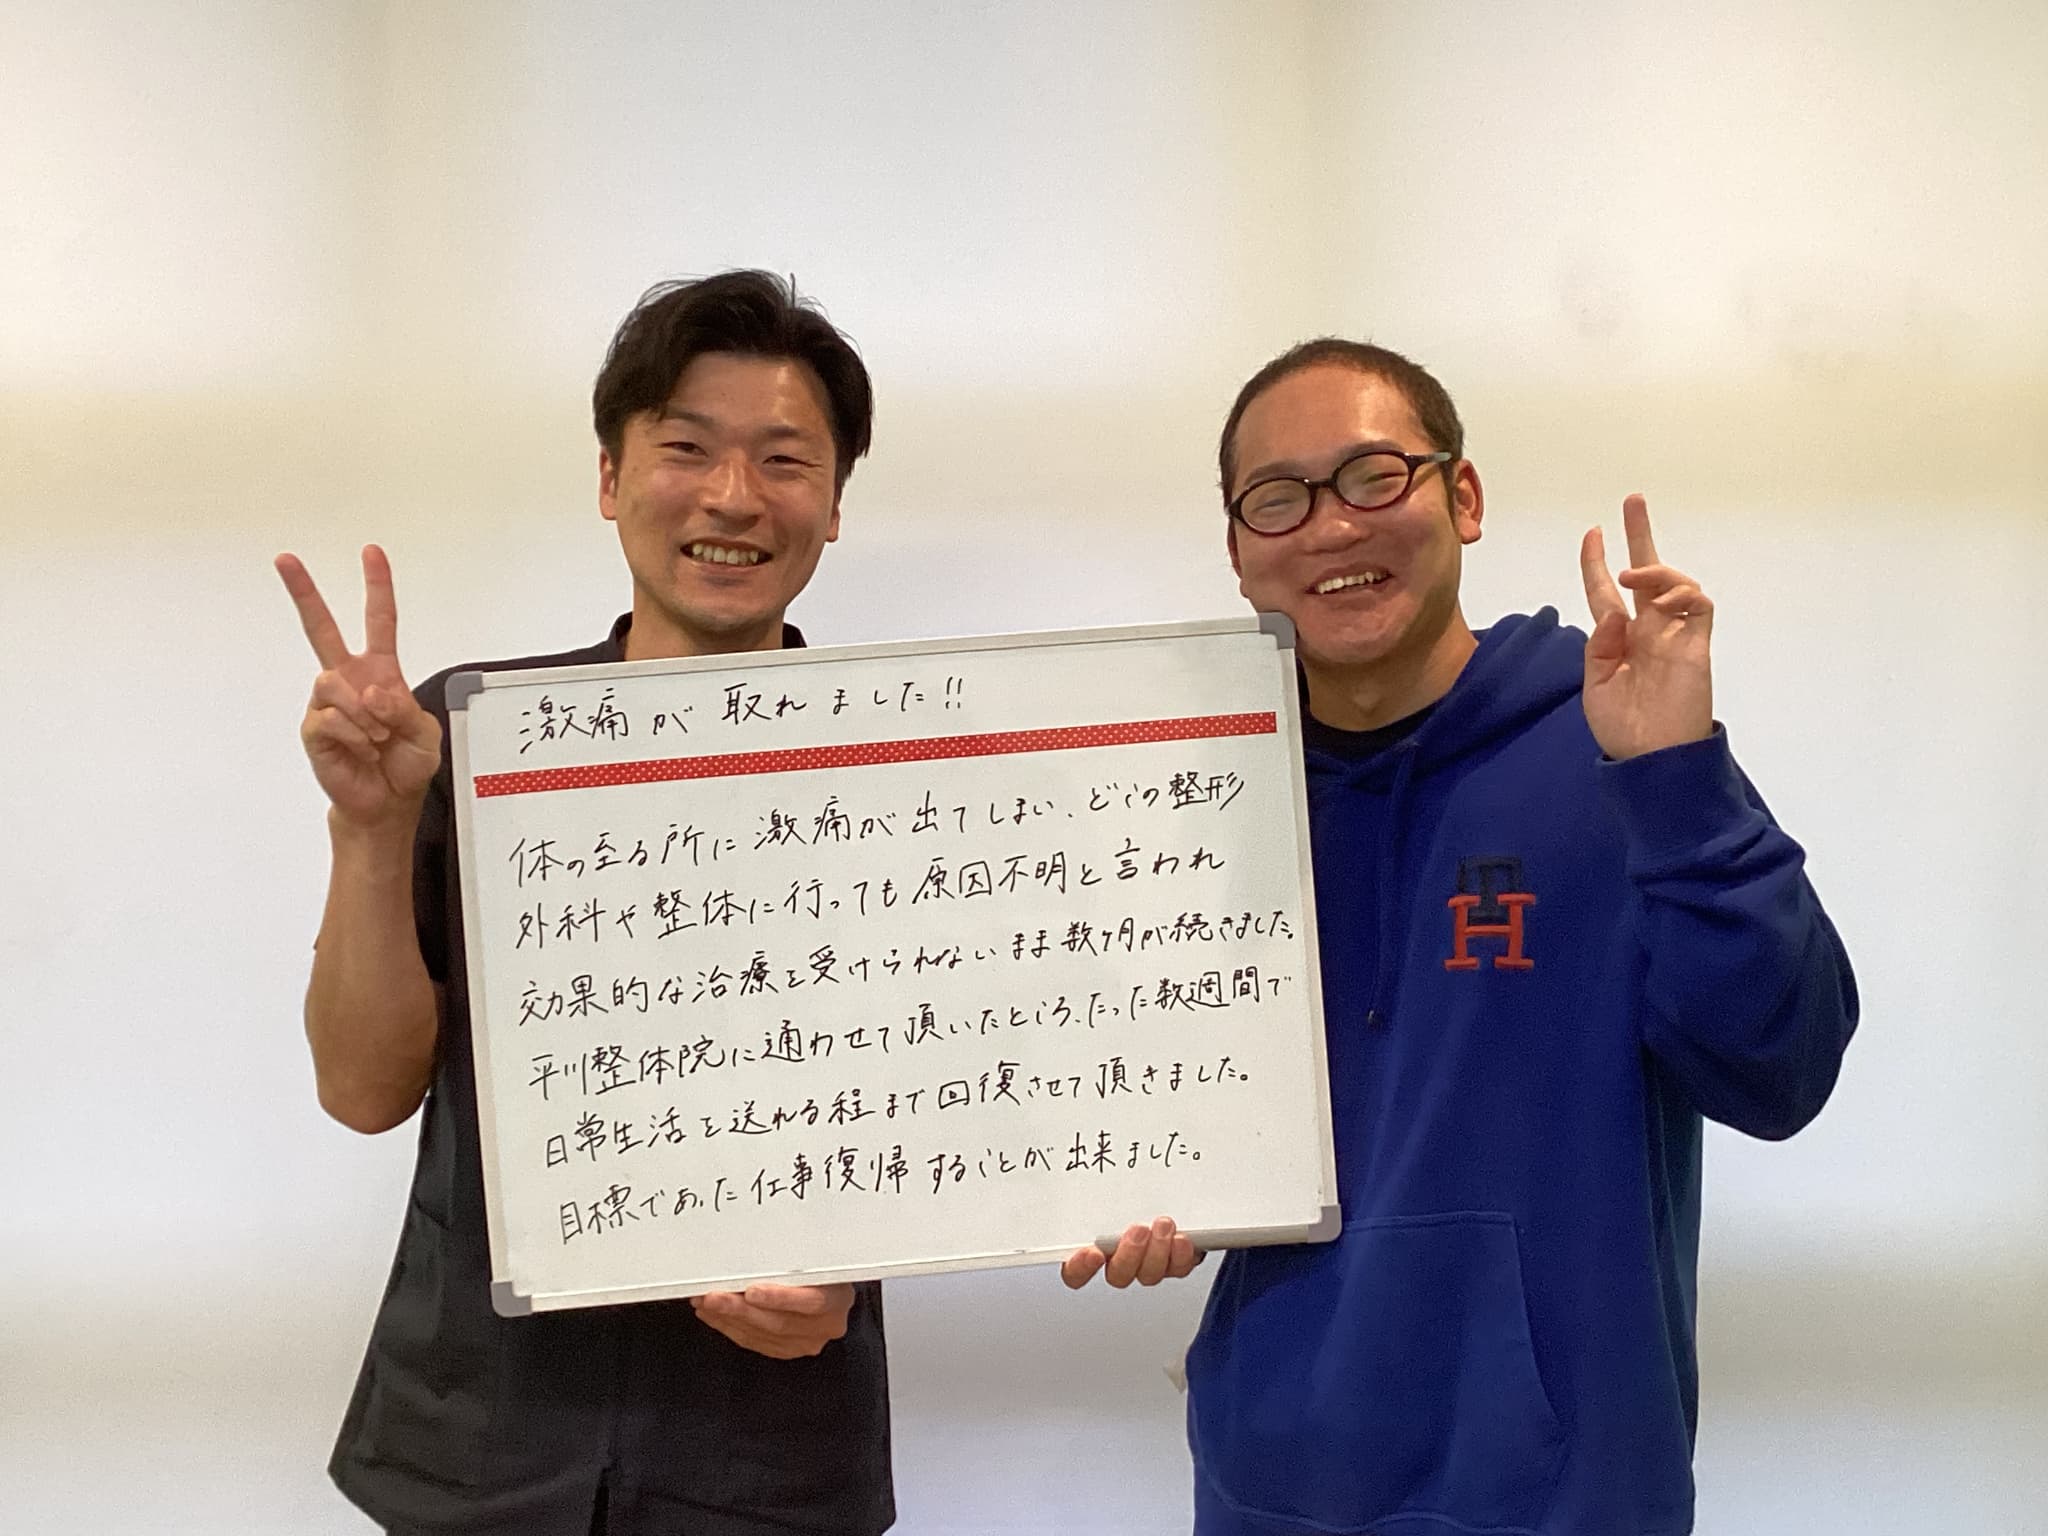 激痛が取れました!!
体の至る所に激痛が出てしまい、どこの整形
外科や整体に行っても原因不明と言われ
効果的な治療を受けられないまま数ヶ月が続きました。
平川整体院に通わせて頂いたところ、たった数週間で
日常生活を送れる程まで回復させて頂きました。
目標であった仕事復帰することが出来ました。
TH